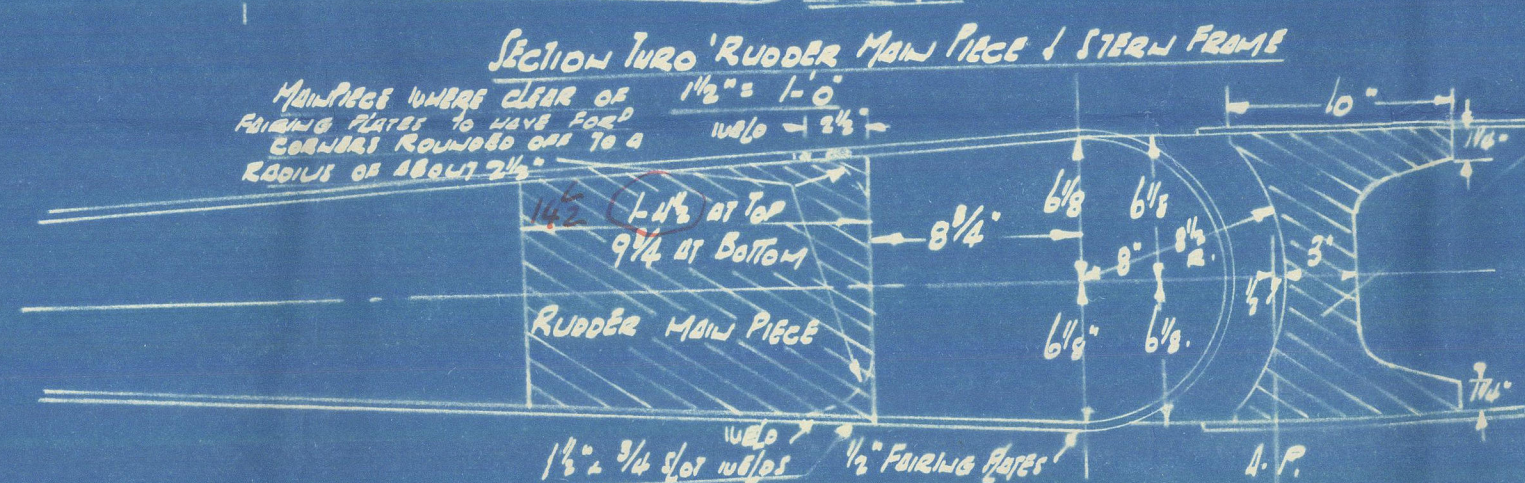 SECTION THRO' RUDDER MAIN PIECE & STERN FRAME
1½" = 1'-0"
MAINPIECE WHERE CLEAR OF
FAIRING PLATES TO HAVE FORD
CORNERS ROUNDED OFF TO A
RADIUS OF ABOUT 2½"
WELD 2½"
10"
1¼"
14½
1-4½ AT TOP
9¾ AT BOTTOM
8¾"
6⅛
6⅛
8"
8½ R.
½"
3"
RUDDER MAIN PIECE
6⅛"
6⅛.
1¼"
WELD
1½" x ¾ SLOT WELDS
½" FAIRING PLATES
A.P.